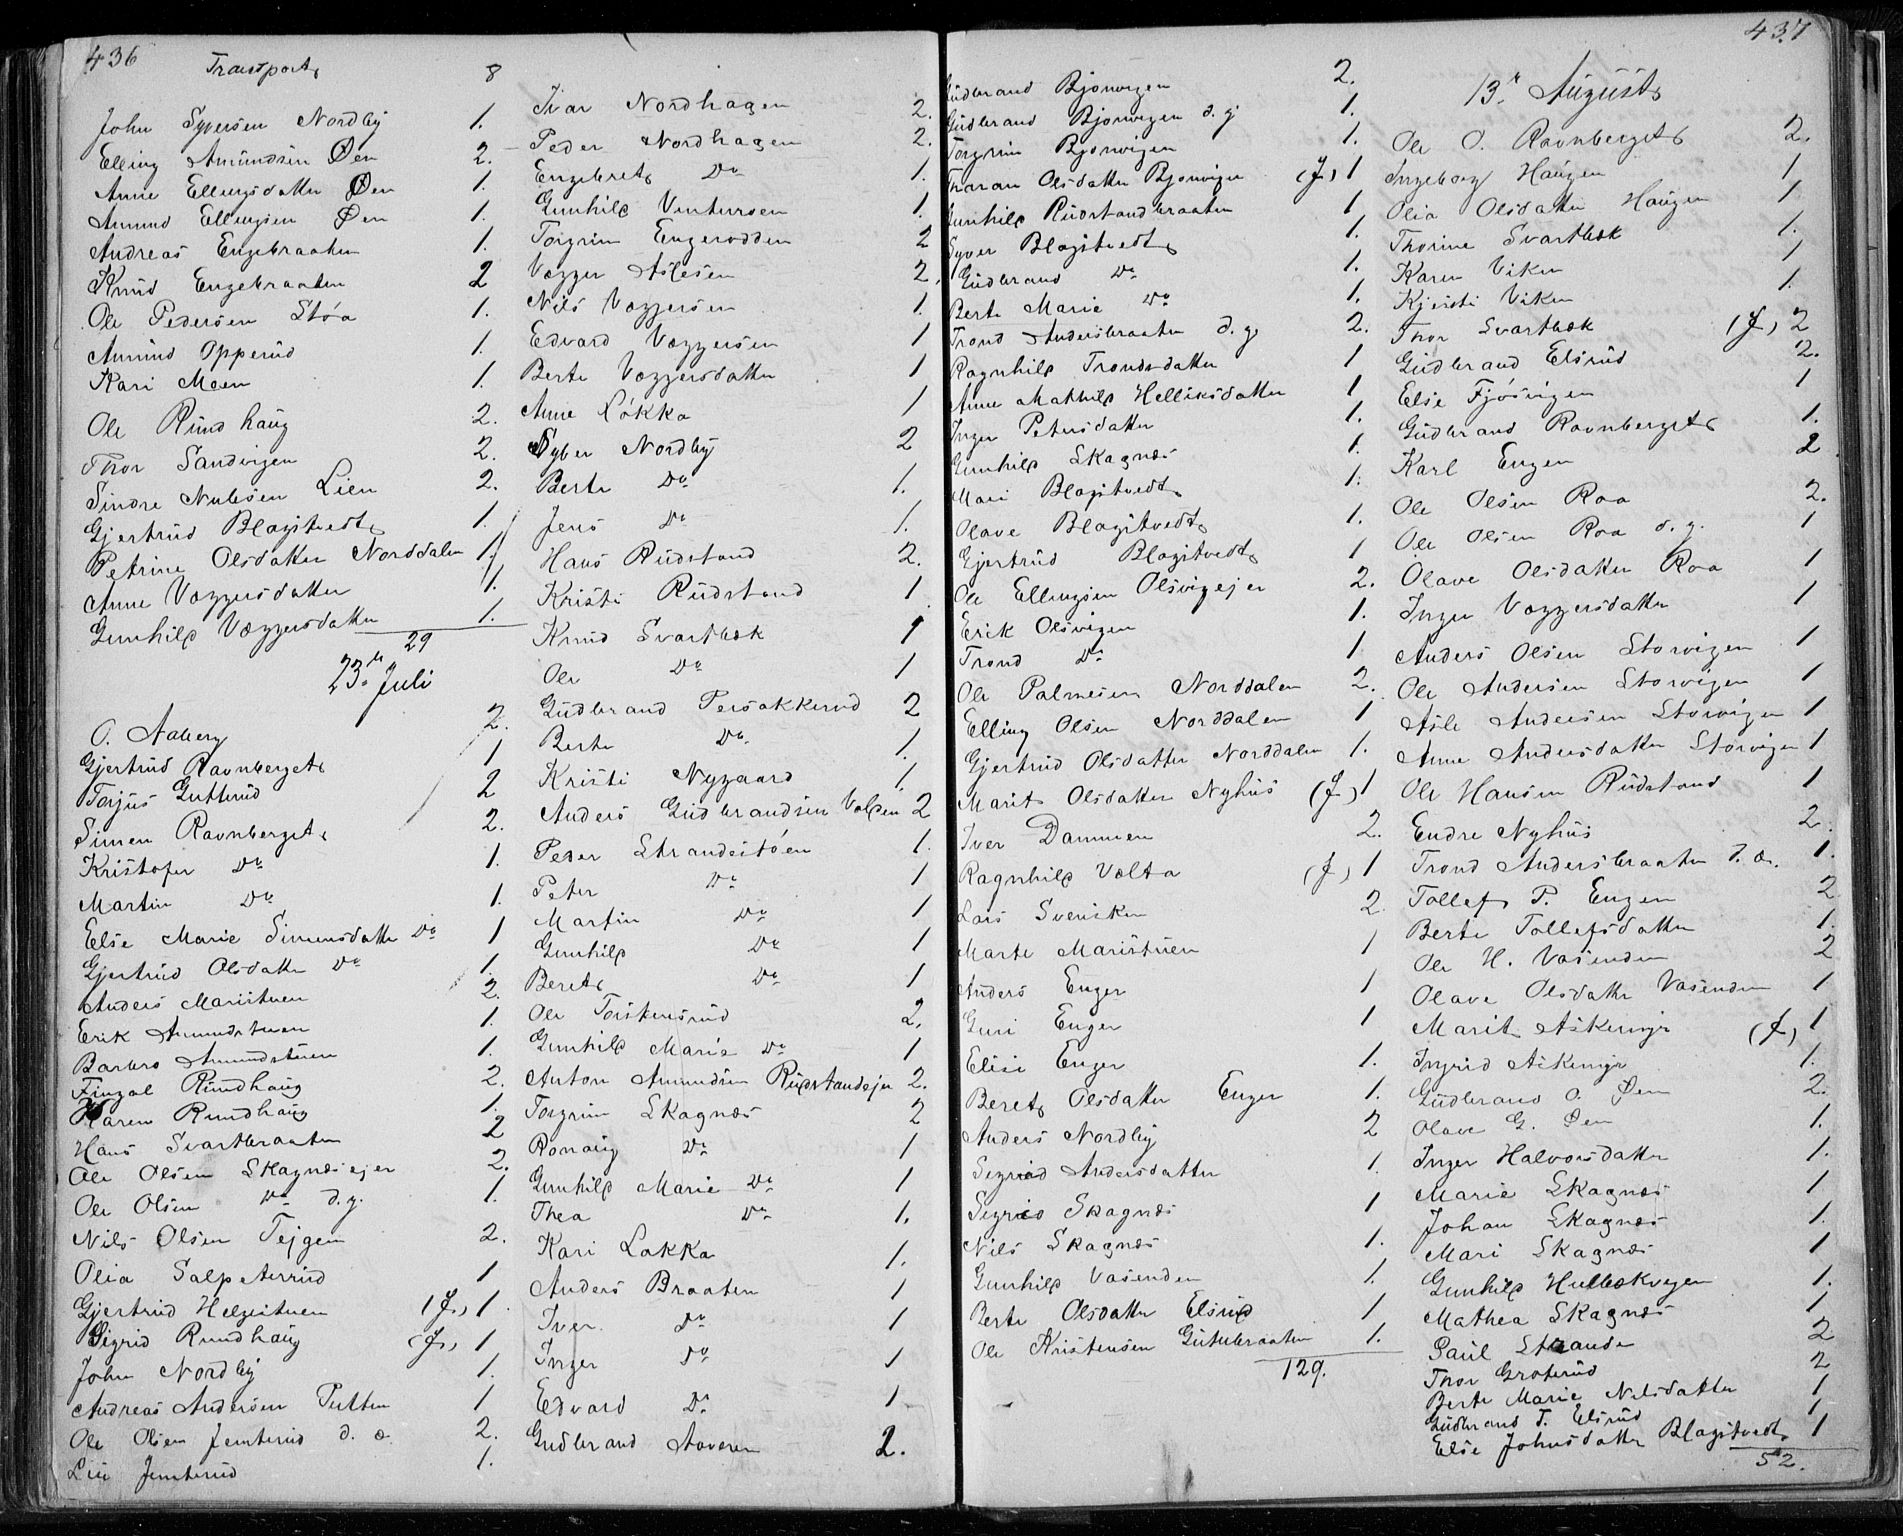 436
Transport 8
John Syversen Nordby 1.
Elling Amundsen Øen 2.
Anne Ellingsdatter Øen 1.
Amund Ellingsen Øen 1.
Andreas Engebraaten 1.
Knud Engebraaten 2
Ole Pedersen Stóa 1.
Amund Opperud 1.
Kari Moen 1.
Ole Rundhaug 2.
Thor Sandvigen 2.
Sindre Nubsen Lien 2.
Gjertrud Blagstvedt 1.
Petrine Olsdatter Norddalen 1.
Anne Væggersdatter 1.
Gunhild Væggersdatter 1.
29
23de Juli
O. Aaberg 2.
Gjertrud Ravnberget 1
Torjus Gutterud 2
Simen Ravnberget 2.
Kristofer Do 1.
Martin Do 1.
Else Marie Simensdatter Do 1
Gjertrud Olsdatter Do 1.
Anders Maristuen 2.
Erik Amundstuen 1.
Barbro Amundstuen 1.
Fingal Rundhaug 2.
Karen Rundhaug 1.
Hans Svartbraaten 2
Ole Olsen Skagnæsejer 2.
Ole Olsen Do d.y. 1.
Nils Olsen Tejgen 2.
Olia Salpeterrud 1
Gjertrud Helgeituen (J.) 1.
Sigrid Rundhaug (J.) 1
John Nordby 1.
Andreas Andersen Putten 1
Ole Olsen Jemterud d. æ. 2.
Live Jemterud 1.
Ivar Nordhagen 2.
Peder Nordhagen 2.
Engebret Do 1.
Gunhild Vintursen 1.
Torgrim Engerodden 2
Vægger Aslesen 2.
Nils Væggersen 1
Edvard Væggersen 1
Berte Væggersdatter 1
Anne Løkka 1
Syver Nordby 2
Berte Do 1.
Jens Do 1.
Hans Rudstand 2.
Kristi Rudstand 1
Knud Svartbæk 1
Ole Do 1
Gudbrand Persakkerud 2
Berte Do 1.
Kristi Nygaard 1
Anders Gudbrandsen Volden 2
Peder Strandestóen 1.
Peter Do 1
Martin Do 1
Gunhild Do 1
Beret Do 1
Ole Toiskensrud 2.
Gunhild Marie Do 1
Anton Amundsen Rudstandejer 2.
Torgrim Skagnæs 2
Ronaug Do 1
Gunhild Marie Do 1
Thea Do 1.
Kari Løkka 1.
Anders Braaten 1
Iver Do 1
Inger Do 1
Edvard Do 1
Gudbrand Aaveren 2.
437
Gudbrand Bjonvigen 2.
Gudbrand Bjonvigen d. y 1.
Torgrim Bjonvigen 1.
Thoran Olsdatter Bjonvigen (J.) 1
Gunhild Rudstandbraaten 1
Syver Blagstvedt 1.
Gudbrand Do 1.
Berte Marie Do 1.
Trond Andersbraaten d. y 2.
Ragnhild Trondsdatter 1
Anne Mathild Helliksdatter 1
Inger Petersdatter 1.
Gunhild Skagnæs 1.
Mari Blagstvedt 1.
Olave Blagstvedt 1.
Gjertrud Blagstvedt 1
Ole Ellingsen Olsvigejer 2.
Erik Olsvigen 1.
Trond Do 1
Ole Palmesen Norddalen 2.
Elling Olsen Norddalen 1
Gjertrud Olsdatter Norddalen 1.
Marit Olsdatter Nyhus (J.) 1
Iver Dammen 2.
Ragnhild Vælta (J.) 1
Lars Svensken 2
Marte Maristuen 1
Anders Enger 1
Guri Enger 1
Elise Enger 1.
Beret Olsdatter Enger 1.
Anders Nordby 2
Sigrid Andersdatter 1.
Sigrid Skagnæs 1
Nils Skagnæs 1.
Gunhild Vasenden 1.
Berte Olsdatter Elsrud 1
Ole Kristensen Gutubraaten 1.
129.
13de August
Ole O. Ravnberget 2.
Ingeborg Haugen 1
Olia Olsdatter Haugen 1
Thorine Svartbæk 1.
Karen Viken 1
Kjersti Viken 1.
Thor Svartbæk (J.) 2
Gudbrand Elsrud 2.
Else Fjósvigen 1
Gudbrand Ravnberget 1.
Karl Engen 2
Ole Olsen Roa 2.
Ole Olsen Roa d. y. 1
Olave Olsdatter Roa 1
Inger Væggersdatter 1
Anders Olsen Storvigen 1
Ole Andersen Storvigen 1
Asle Andersen Storvigen 1
Anne Andersdatter Storvigen 1
Ole Hansen Rudstand 1
Endre Nyhus 2.
Trond Andersbraaten d. æ. 1.
Tollef P. Engen 2
Berte Tollefsdatter 1.
Ole H. Vasenden 2
Olave Olsdatter Vasenden 1
Marit Askeruejr (J.) 1
Ingrid Askeruejr 1.
Gudbrand O. Øen 2.
Olave G. Øen 1.
Inger Halvorsdatter 1.
Marie Skagnæs 1
Johan Skagnæs 1.
Mari Skagnæs 1
Gunhild Hulbækvegen 1.
Mathea Skagnæs 1
Paul Strande 2
Thor Groterud 2
Berte Marie Nilsdatter 1
Gudbrand T. Elsrud 1
Else Johnsdatter Blagstvedt 1
52.